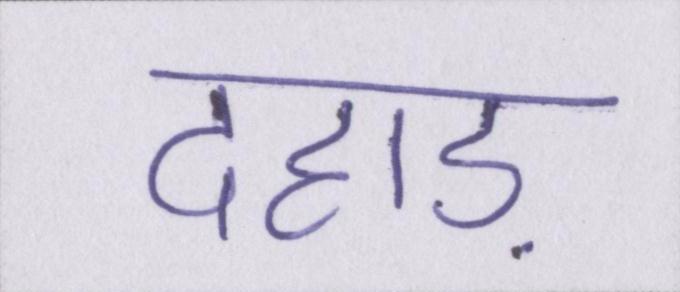 दहाड़